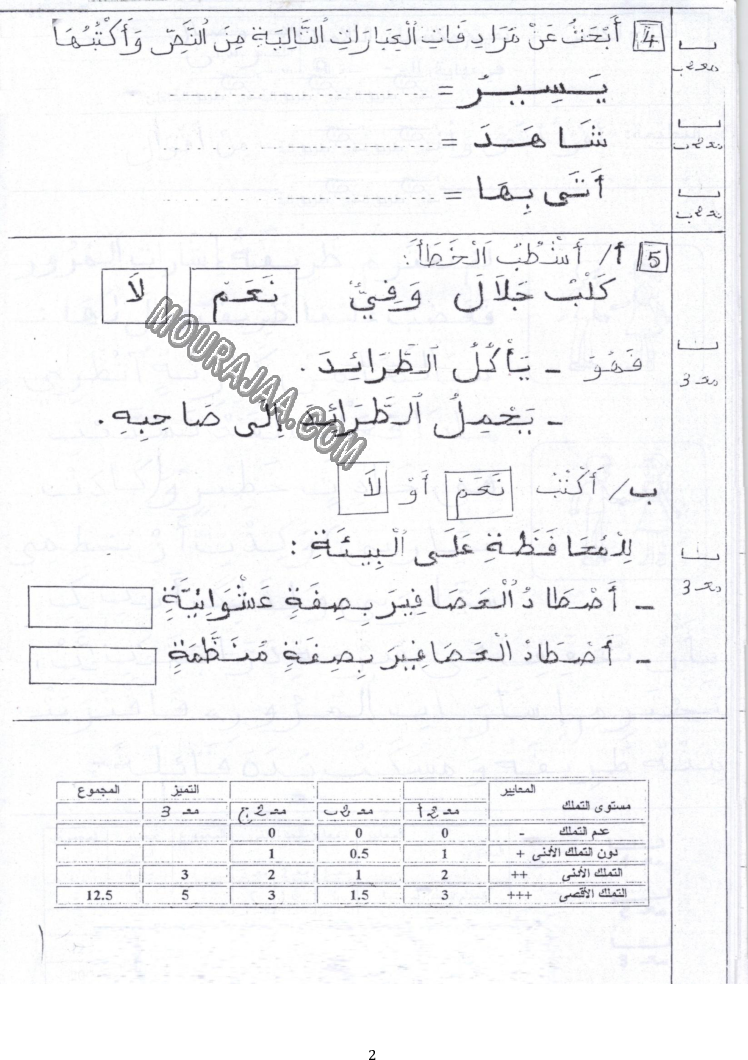 4 أَبْحَثُ عَنْ مُرَادِفَاتِ الْعِبَارَاتِ التَّالِيَةِ مِنَ النَّصِّ وَأَكْتُبُهَا
يَسِيرُ = ..............................
مع2ب
شَاهَدَ = ..............................
مع2ب
أَتَى بِهَا = ..............................
مع2ب
5 أ/ أَشْطُبُ الْخَطَأَ:
كَلْبُ جَلَالَ وَفِيٌّ نَعَمْ لَا
فَهُوَ - يَأْكُلُ الطَّرَائِدَ.
مع3
- يَحْمِلُ الطَّرَائِدَ إِلَى صَاحِبِهِ.
MOURAJAA.COM
ب/ أَكْتُبُ نَعَمْ أَوْ لَا
لِلْمُحَافَظَةِ عَلَى الْبِيئَةِ:
مع3
- أَصْطَادُ الْعَصَافِيرَ بِصِفَةٍ عَشْوَائِيَّةٍ
- أَصْطَادُ الْعَصَافِيرَ بِصِفَةٍ مُنَظَّمَةٍ
المعايير التميز المجموع
مستوى التملك مع2أ مع2ب مع2ج مع3
عدم التملك - 0 0 0
دون التملك الأدنى + 1 0.5 1
التملك الأدنى ++ 2 1 2 3
التملك الأقصى +++ 3 1.5 3 5 12.5
2